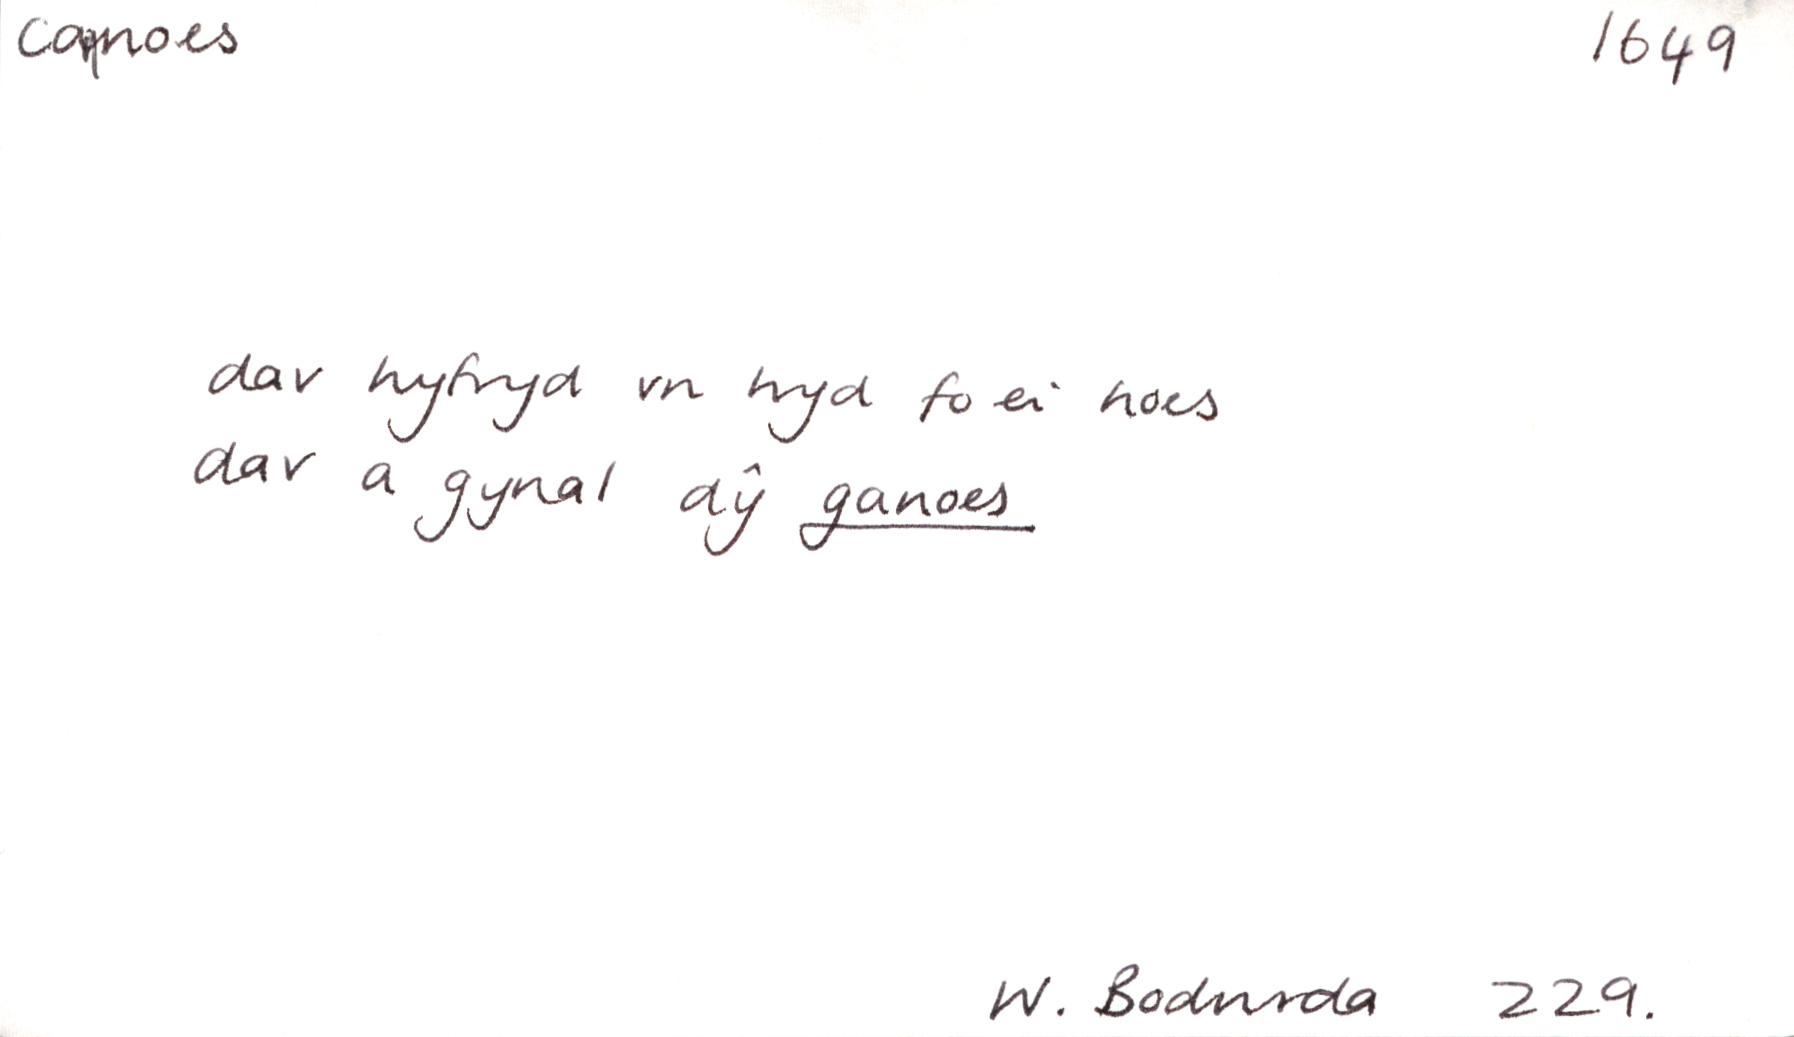 canoes 1649
dav hyfryd vn hyd fo ei hoes
dav a gynal dŷ ganoes
W. Bodwrda 229.